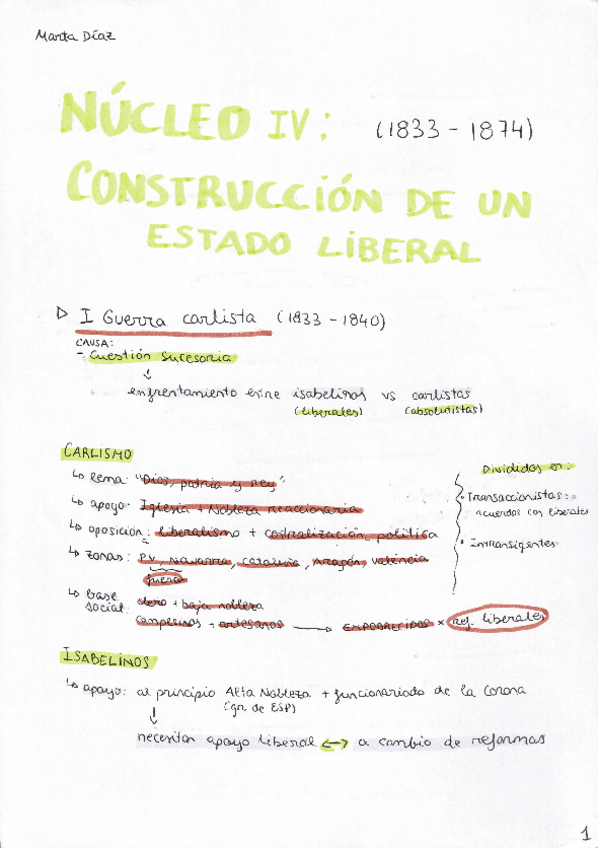 Marta Díaz
NÚCLEO IV: (1833 - 1874)
CONSTRUCCIÓN DE UN
ESTADO LIBERAL
▷ I Guerra carlista (1833 - 1840)
CAUSA:
- Cuestión sucesoria
↓
enfrentamiento entre isabelinos vs carlistas
(liberales) (absolutistas)
CARLISMO
↳ lema: "Dios, patria y Rey"
↳ apoyo: Iglesia + Nobleza reaccionaria
↳ oposición: liberalismo + centralización política
↳ zonas: PV, Navarra, Cataluña, Aragón, Valencia
fueros
↳ base
social: clero + baja nobleza
campesinos + artesanos → EMPOBRECIDOS x ref. liberales
Divididos en:
• Transaccionistas:
acuerdos con liberales
• Intransigentes
ISABELINOS
↳ apoyo: al principio Alta Nobleza + funcionariado de la Corona
(gr. de ESP)
↓
necesitan apoyo liberal ↔ a cambio de reformas
1